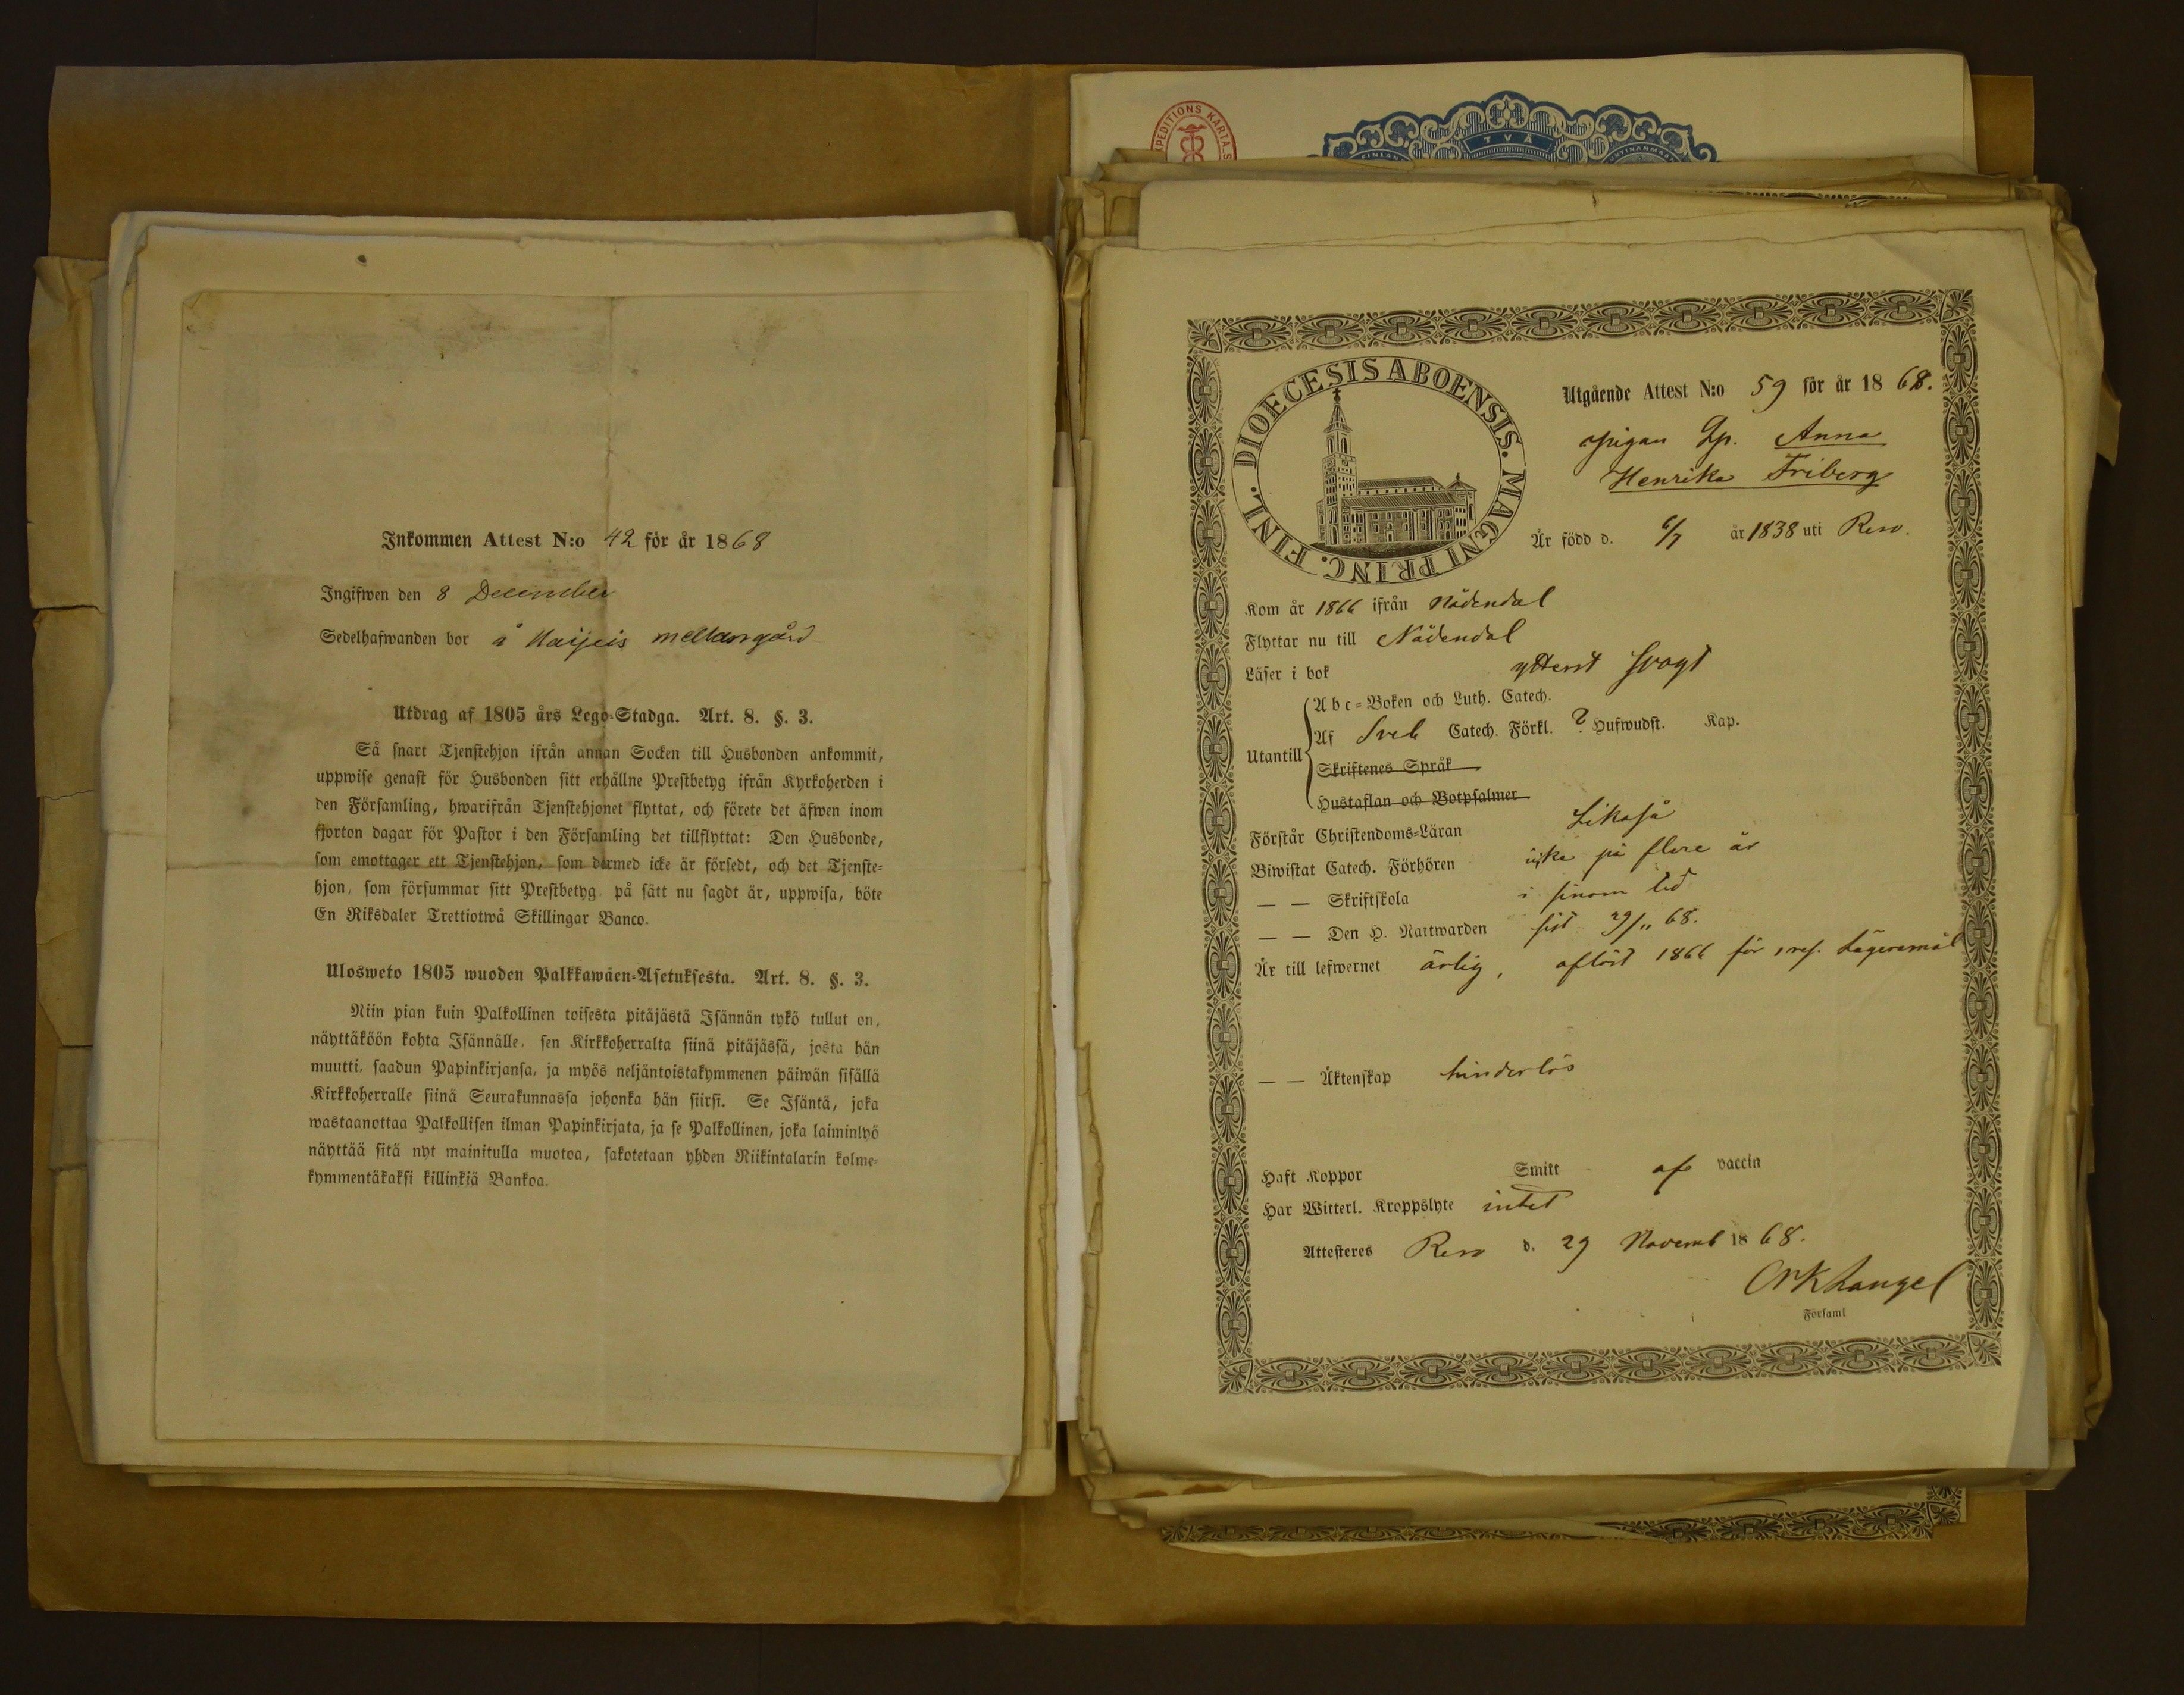 Inkommen Attest N:o 42 för år 1868
Ingifwen den 8 December
Sedelhafwanden bor å Kaijeis mellangård
Utdrag af 1805 års Lego-Stadga. Art. 8. §. 3.
Så snart Tjenstehjon ifrån annan Socken till Husbonden ankommit,
uppwise genast för Husbonden sitt erhållne Prestbetyg ifrån Kyrkoherden i
den Församling, hwarifrån Tjenstehjonet flyttat, och förete det äfwen inom
fjorton dagar för Pastor i den Församling det tillflyttat: Den Husbonde,
som emottager ett Tjenstehjon, som dermed icke är försedt, och det Tjenste-
hjon, som försummar sitt Prestbetyg på sätt nu sagdt är, uppwisa, böte
En Riksdaler Trettiotwå Skillingar Banco.
Ulosweto 1805 wuoden Palkkawäen-Asetuksesta. Art. 8. §. 3.
Niin pian kuin Palkollinen toisesta pitäjästä Isännän tykö tullut on,
näyttäköön kohta Isännälle, sen Kirkkoherralta siinä pitäjässä, josta hän
muutti, saadun Papinkirjansa, ja myös neljäntoistakymmenen päiwän sisällä
Kirkkoherralle siinä Seurakunnassa johonka hän siirsi. Se Isäntä, joka
wastaanottaa Palkollisen ilman Papinkirjata, ja se Palkollinen, joka laiminlyö
näyttää sitä nyt mainitulla muotoa, sakotetaan yhden Riikintalarin kolme-
kymmentäkaksi killinkiä Bankoa.
EXPEDITIONS KARTA S
TVÅ
DIOECESIS ABOENSIS. MAGNI PRINC. FINL.
Utgående Attest N:o 59 för år 1868.
pigan Anna
Henrika Friberg
Är född d. 6/7 år 1838 uti Reso.
Kom år 1866 ifrån Nådendal
Flyttar nu till Nådendal
Läser i bok ytterst svagt
Abc-Boken och Luth. Catech.
Utantill Af Sveb Catech. Förkl. ? Hufwudst. Kap.
Skriftenes Språk
Hustaflan och Botpsalmer
Förstår Christendoms-Läran Likaså
Biwistat Catech. Förhören icke på flere år
— — Skriftskola i sinom tid
— — Den H. Nattwarden sist 29/11 68.
Är till lefwernet ärlig, aflöst 1866 för 1 res. Lägersmål
— — Äktenskap hinderlös
Haft Koppor Smitt af vaccin
Har Witterl. Kroppslyte intet
Attesteres Reso d. 29 Novemb 1868.
Församl